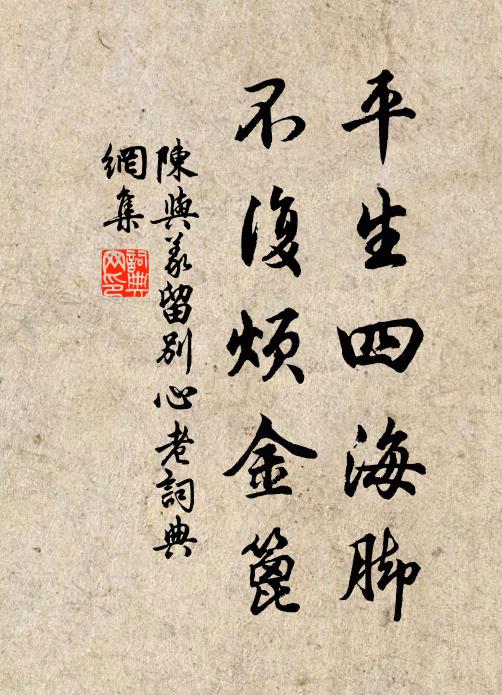 平生四海脚
不復煩金篦
陳與義留別心老詞典
網集
詞典
网印